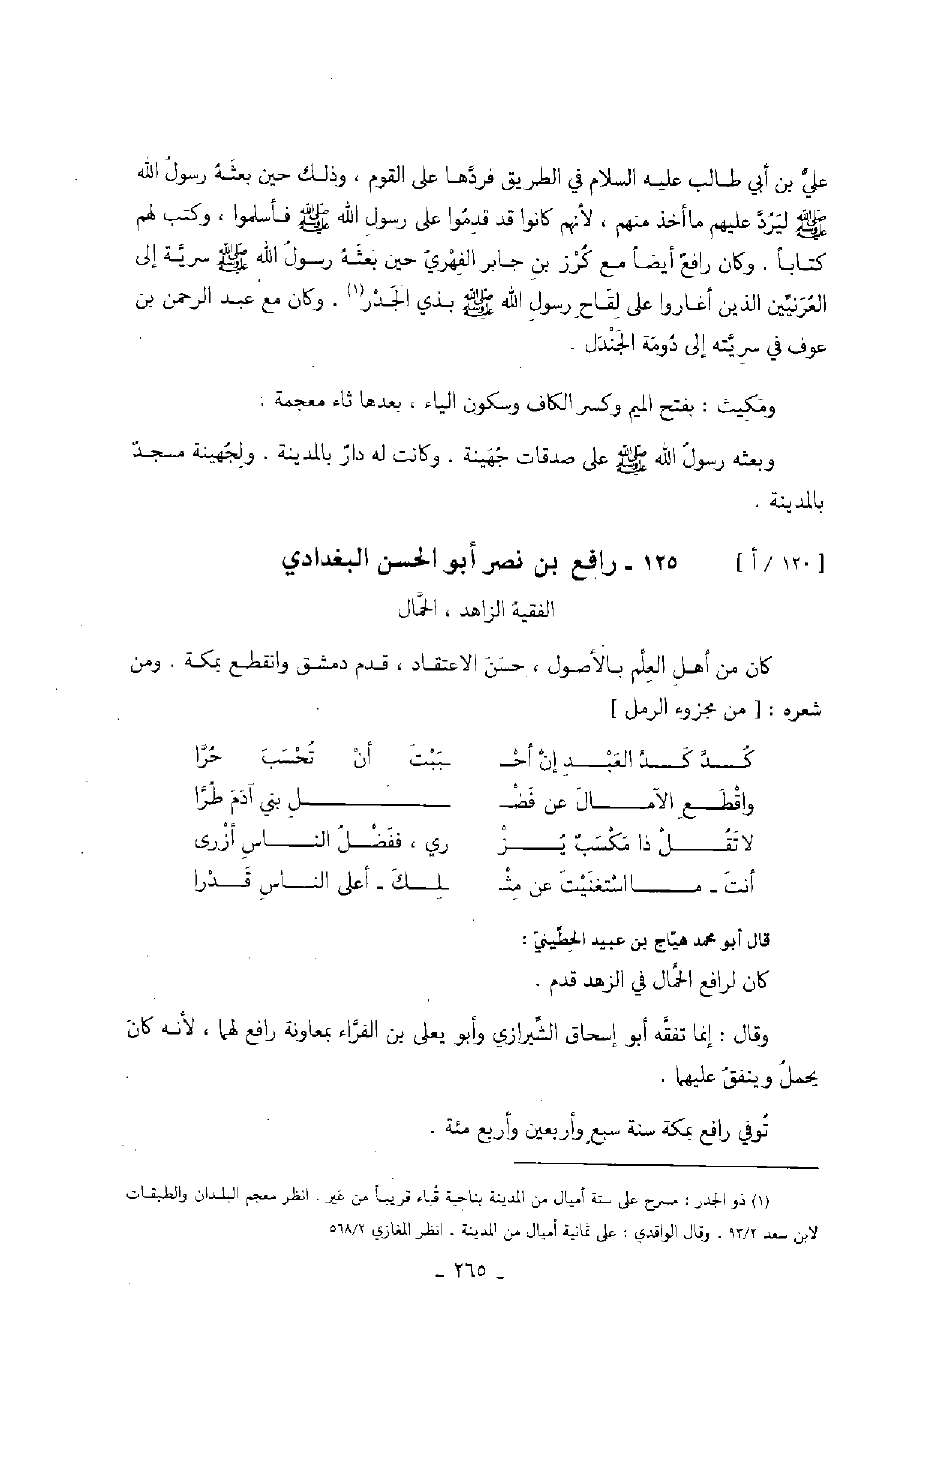 عليُّ بن أبي طالب عليه السلام في الطريق فردَّها على القوم ، وذلك حين بعثَهُ رسولُ الله
ﷺ لِيَرُدَّ عليهم ماأخذ منهم ، لأنهم كانوا قد قدِمُوا على رسول الله ﷺ فأسلموا ، وكتب لهم
كتاباً . وكان رافعٌ أيضاً مع كُرْز بن جابر الفِهْريّ حين بعثَهُ رسولُ الله ﷺ سريَّة إلى
العُرَنيِّين الذين أغاروا على لِقَاح رسولِ الله ﷺ بذي الجَدْر(١) . وكان مع عبد الرحمن بن
عوف في سريَّته إلى دُومَة الجَنْدَل .
ومَكِيث : بفتح الميم وكسر الكاف وسكون الياء ، بعدها ثاء معجمة .
وبعثه رسولُ الله ﷺ على صدقات جُهَينة . وكانت له دارٌ بالمدينة . ولجُهينة مسجدٌ
بالمدينة .
[ ١٢٠ / أ ] ١٢٥ ـ رافع بن نصر أبو الحسن البغدادي
الفقيه الزاهد ، الحمَّال
كان من أهل العِلْم بالأصول ، حسَنَ الاعتقاد ، قدم دمشق وانقطع بمكة . ومن
شعره : [ من مجزوء الرمل ]
كُدَّ كَدَّ العَبْدِ إنْ أحْـ ـبَبْتَ أنْ تُحْسَبَ حُرَّا
واقْطَعِ الآمَالَ عن فَضْـ ـلِ بني آدَمَ طُرَّا
لاتَقُلْ ذا مَكْسَبٌ يُزْ ري ، ففَضْلُ الناسِ أزْرى
أنتَ ـ مااسْتغنَيْتَ عن مِثْـ لِكَ ـ أعلى الناسِ قَدْرا
قال أبو محمد هيَّاج بن عبيد الحِطِّينيّ :
كان لرافع الحمَّال في الزهد قدم .
وقال : إنما تفقَّه أبو إسحاق الشِّيرازي وأبو يعلى بن الفرَّاء بمعاونة رافع لهما ، لأنه كانَ
يحملُ وينفقُ عليهما .
تُوفي رافع بمكة سنة سبعٍ وأربعين وأربع مئة .
(١) ذو الجدر : مسرح على ستة أميال من المدينة بناحية قُباء قريباً من عَير . انظر معجم البلدان والطبقات
لابن سعد ٩٣/٢ . وقال الواقدي : على ثمانية أميال من المدينة . انظر المغازي ٥٦٨/٢
ـ ٢٦٥ ـ